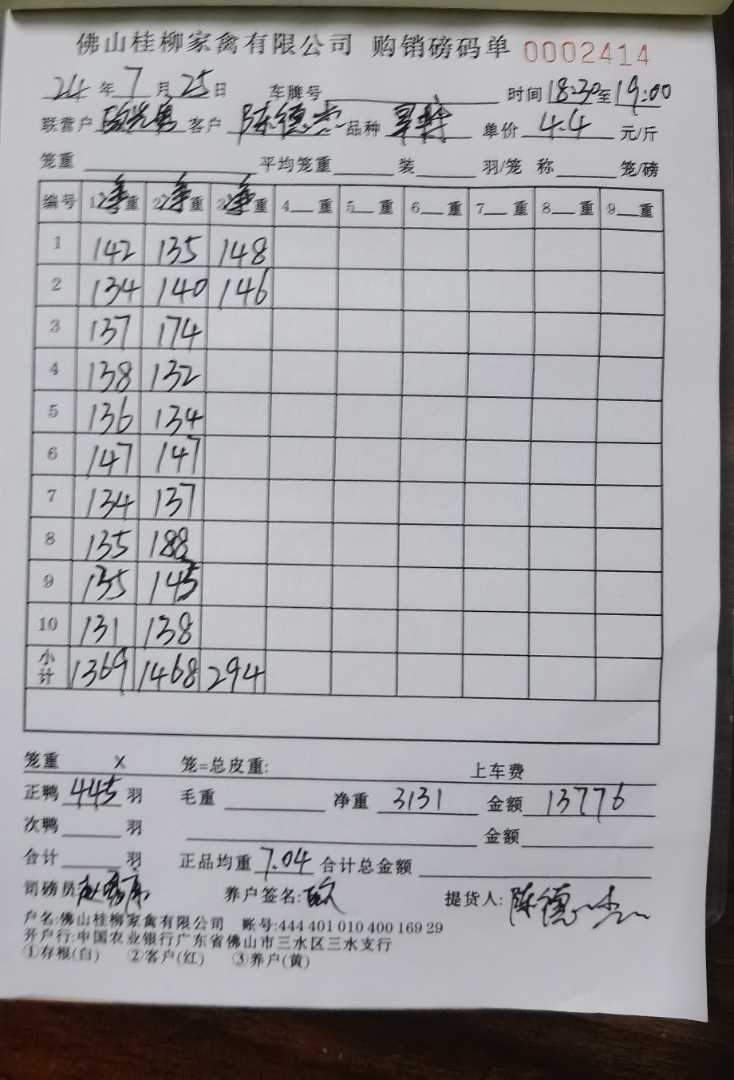 佛山桂柳家禽有限公司 购销磅码单 0002414
24年7月25日 车牌号 时间18:30至19:00
联营户 客户 陈德杰 品种 单价 4.4 元/斤
笼重 平均笼重 装 羽/笼 称 笼/磅
编号 1净重 2净重 3净重 4 重 5 重 6 重 7 重 8 重 9 重
1 142 135 148
2 134 140 146
3 137 174
4 138 132
5 136 134
6 147 147
7 134 137
8 135 188
9 135 145
10 131 138
小计 1369 1468 294
笼重 X 笼=总皮重: 上车费
正鸭 445 羽 毛重 净重 3131 金额 13776
次鸭 羽 金额
合计 羽 正品均重 7.04 合计总金额
司磅员 养户签名: 提货人: 陈德杰
户名:佛山桂柳家禽有限公司 账号:444 401 010 400 169 29
开户行:中国农业银行广东省佛山市三水区三水支行
①存根(白) ②客户(红) ③养户(黄)